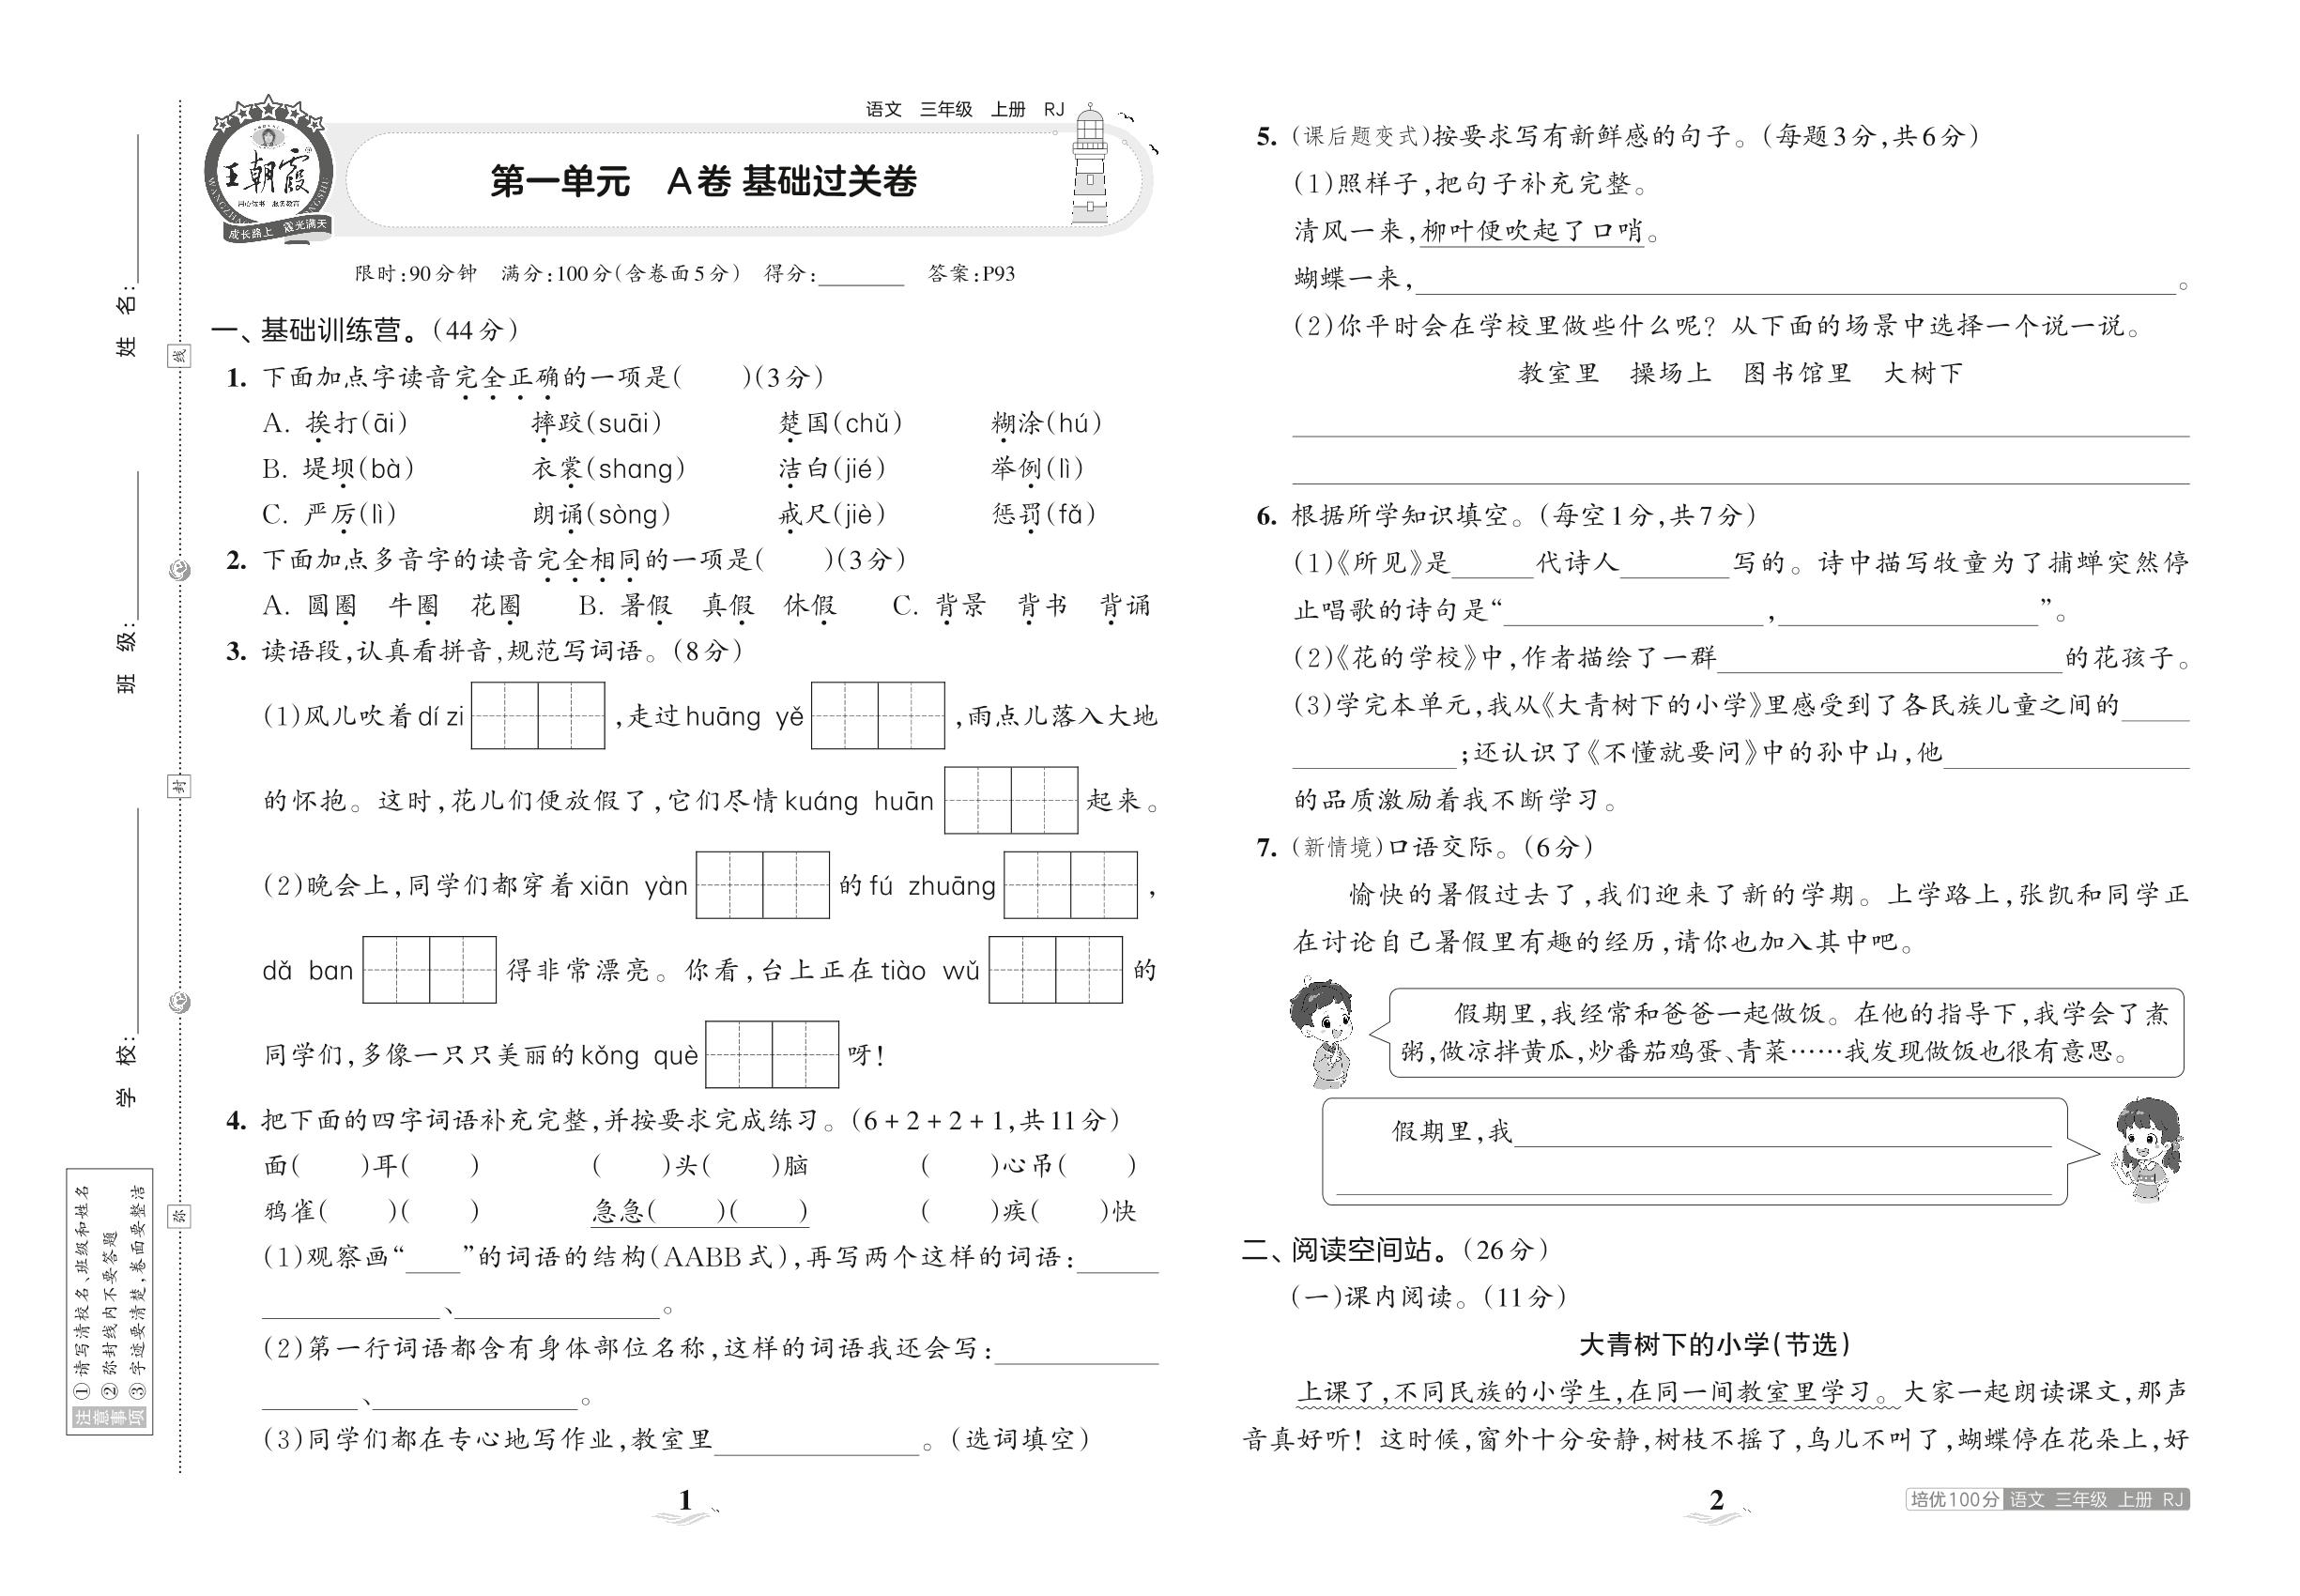 姓 名:
班 级:
学 校:
线
封
弥
注意事项
①请写清校名、班级和姓名
②弥封线内不要答题
③字迹要清楚,卷面要整洁
王朝霞
成长路上 霞光满天
语文 三年级 上册 RJ
第一单元 A卷 基础过关卷
限时:90分钟 满分:100分(含卷面5分) 得分:______ 答案:P93
一、基础训练营。(44分)
1. 下面加点字读音完全正确的一项是( )(3分)
A. 挨打(āi) 摔跤(suāi) 楚国(chǔ) 糊涂(hú)
B. 堤坝(bà) 衣裳(shang) 洁白(jié) 举例(lì)
C. 严厉(lì) 朗诵(sòng) 戒尺(jiè) 惩罚(fǎ)
2. 下面加点多音字的读音完全相同的一项是( )(3分)
A. 圆圈 牛圈 花圈 B. 暑假 真假 休假 C. 背景 背书 背诵
3. 读语段,认真看拼音,规范写词语。(8分)
(1)风儿吹着dí zi ,走过huāng yě ,雨点儿落入大地
的怀抱。这时,花儿们便放假了,它们尽情kuáng huān 起来。
(2)晚会上,同学们都穿着xiān yàn 的fú zhuāng ,
dǎ ban 得非常漂亮。你看,台上正在tiào wǔ 的
同学们,多像一只只美丽的kǒng què 呀!
4. 把下面的四字词语补充完整,并按要求完成练习。(6+2+2+1,共11分)
面( )耳( ) ( )头( )脑 ( )心吊( )
鸦雀( )( ) 急急( )( ) ( )疾( )快
(1)观察画“____”的词语的结构(AABB式),再写两个这样的词语:______
____________、____________。
(2)第一行词语都含有身体部位名称,这样的词语我还会写:____________
______、____________。
(3)同学们都在专心地写作业,教室里____________。(选词填空)
1
5. (课后题变式)按要求写有新鲜感的句子。(每题3分,共6分)
(1)照样子,把句子补充完整。
清风一来,柳叶便吹起了口哨。
蝴蝶一来,____________。
(2)你平时会在学校里做些什么呢?从下面的场景中选择一个说一说。
教室里 操场上 图书馆里 大树下
6. 根据所学知识填空。(每空1分,共7分)
(1)《所见》是______代诗人________写的。诗中描写牧童为了捕蝉突然停
止唱歌的诗句是“____________,____________”。
(2)《花的学校》中,作者描绘了一群____________的花孩子。
(3)学完本单元,我从《大青树下的小学》里感受到了各民族儿童之间的____
____________;还认识了《不懂就要问》中的孙中山,他____________
的品质激励着我不断学习。
7. (新情境)口语交际。(6分)
愉快的暑假过去了,我们迎来了新的学期。上学路上,张凯和同学正
在讨论自己暑假里有趣的经历,请你也加入其中吧。
假期里,我经常和爸爸一起做饭。在他的指导下,我学会了煮
粥,做凉拌黄瓜,炒番茄鸡蛋、青菜……我发现做饭也很有意思。
假期里,我____________
二、阅读空间站。(26分)
(一)课内阅读。(11分)
大青树下的小学(节选)
上课了,不同民族的小学生,在同一间教室里学习。大家一起朗读课文,那声
音真好听!这时候,窗外十分安静,树枝不摇了,鸟儿不叫了,蝴蝶停在花朵上,好
2
培优100分 语文 三年级 上册 RJ